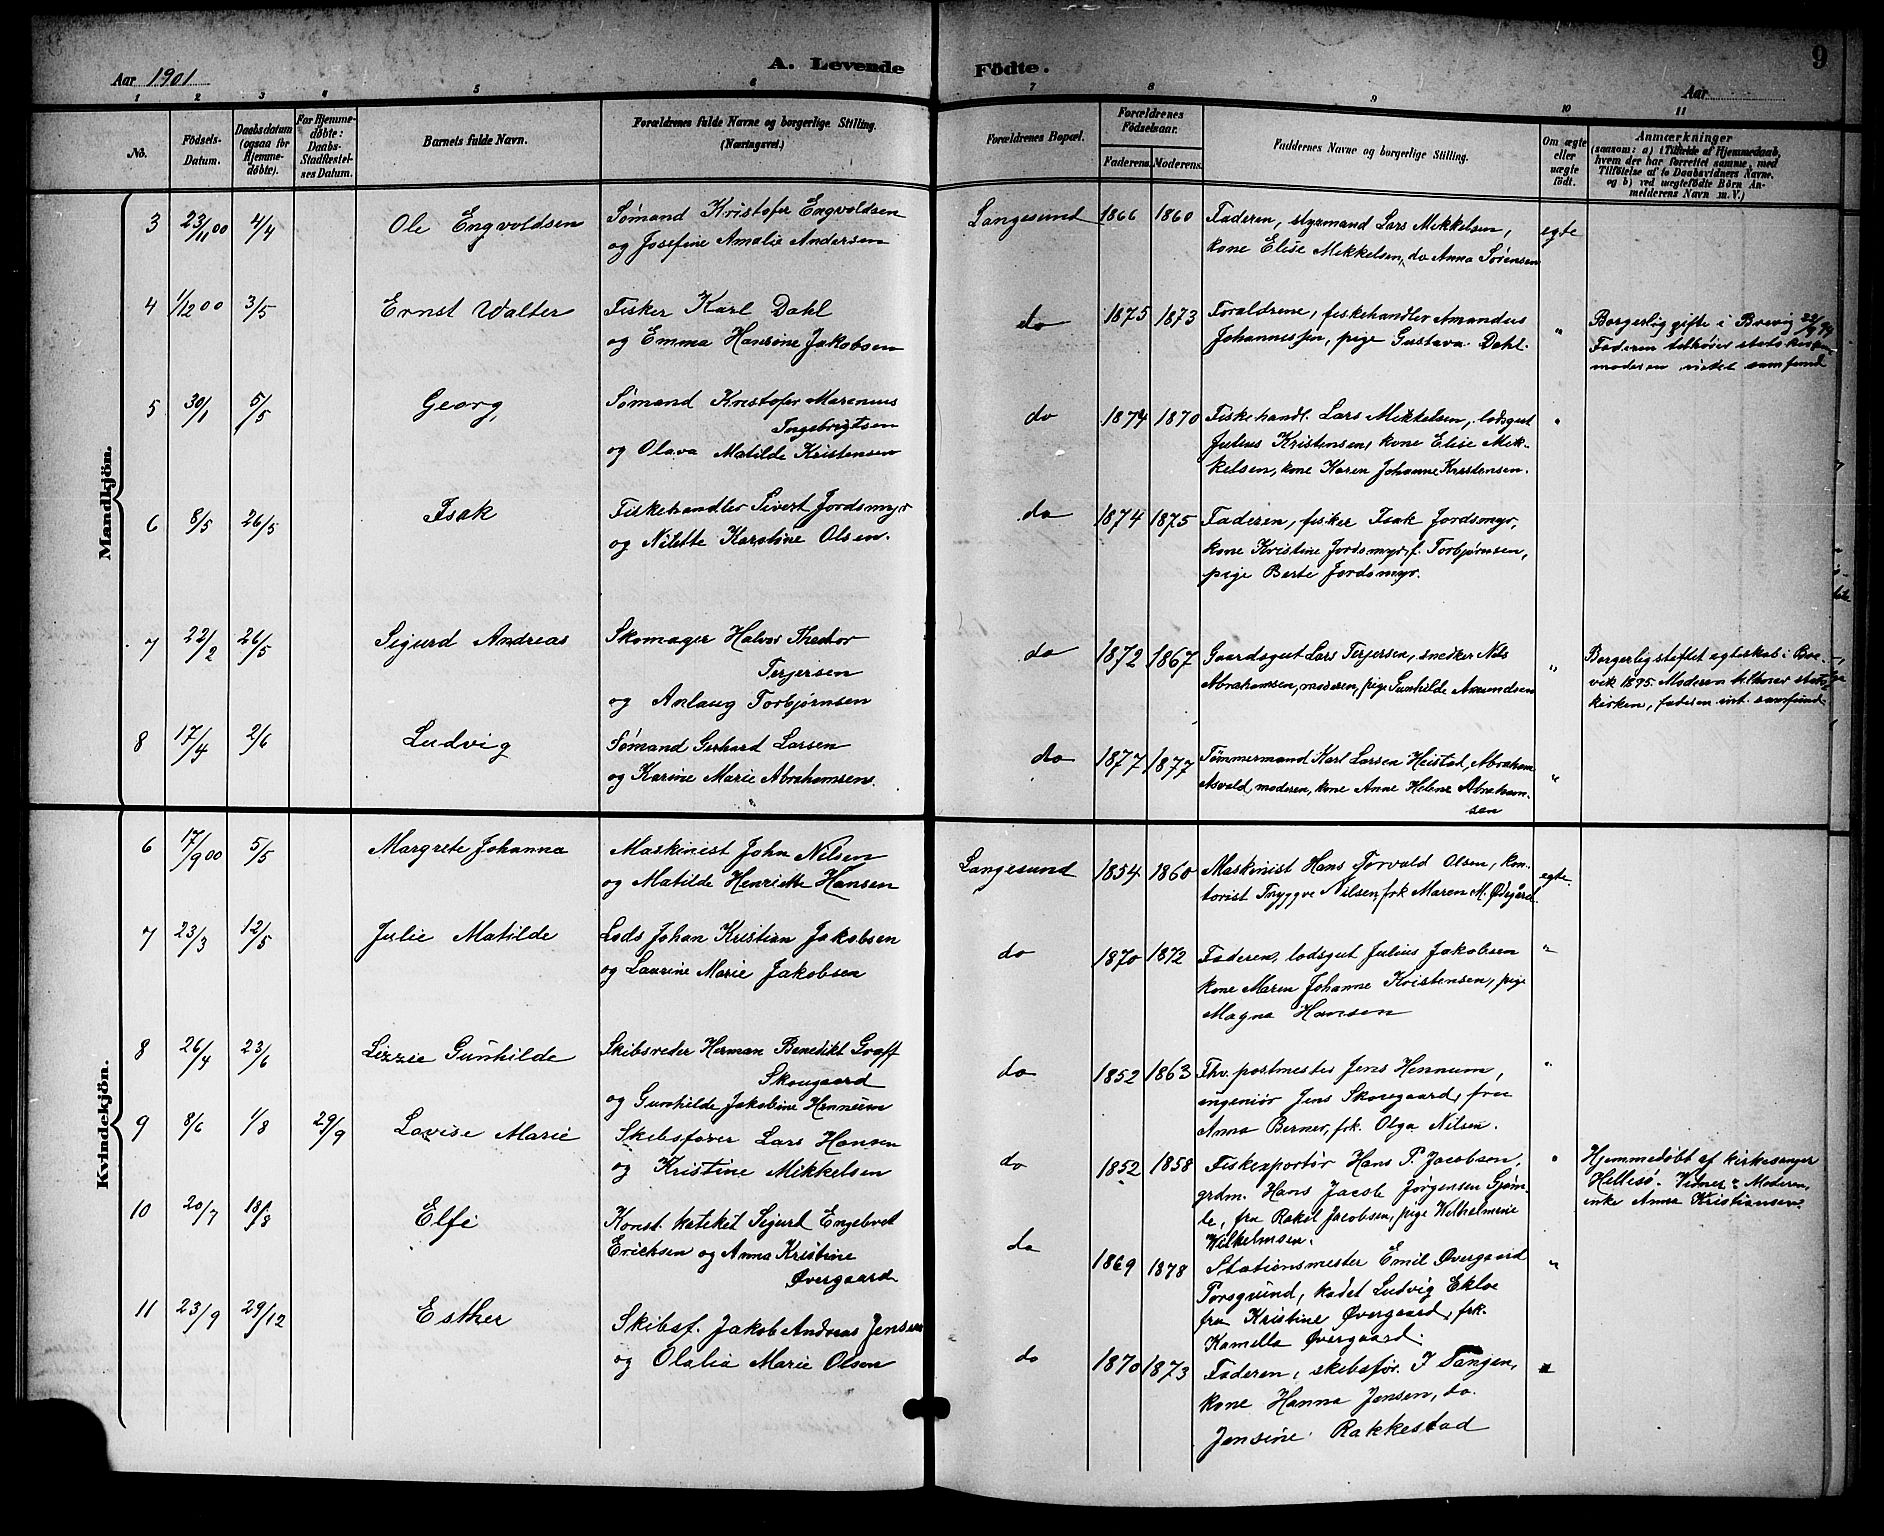 Aar 1901
A. Levende Födte.
9
Aar
1 2 3 4 5 6 7 8 9 10 11
No.
Födsels-
Datum.
Daabsdatum
(ogsaa for
Hjemme-
døbte).
For Hjemme-
døbte:
Daabs-
Stadfæstel-
ses Datum.
Barnets fulde Navn.
Forældrenes fulde Navne og borgerlige Stilling.
(Næringsvei.)
Forældrenes Bopæl.
Forældrenes
Födselsaar.
Faderens. Moderens.
Faddernes Navne og borgerlige Stilling.
Om ægte
eller
uægte
født.
Anmærkninger
(saasom: a) i Tilfælde af Hjemmedaab,
hvem der har forrettet samme, med
Tilføielse af to Daabsvidners Navne,
og b) ved uægtefødte Börn An-
melderens Navn m. V.)
Mandkjön.
3 23/11 00 4/4 Ole Engvoldsen Sømand Kristofer Engvoldsen
og Josefine Amalie Andersen
Langesund 1866 1860 Faderen, styrmand Lars Mikkelsen,
kone Elise Mikkelsen, do Anna Sørensen
egte
4 1/12 00 3/5 Ernst Walter Fisker Karl Dahl
og Emma Hansine Jakobsen
do 1875 1873 Forældrene, fiskehandler Amandus
Johannessen, pige Gustava Dahl.
" Borgerlig gifte i Brevig
Faderen tilhører statskirken
moderen intet samfund
5 30/1 5/5 Georg, Sømand Kristofer Marenius
Ingebrigtsen
og Olava Matilde Kristensen
do 1874 1870 Fiskehandl. Lars Mikkelsen, lodsgut
Julius Kristensen, kone Elise Mik-
kelsen, kone Karen Johanne Kristensen.
"
6 8/5 26/5 Isak Fiskehandler Sivert Jordsmyr
og Nilette Karoline Olsen.
do 1874 1875 Faderen, fisker Isak Jordsmyr,
kone Kristine Jordsmyr, f. Torbjørnsen,
pige Berte Jordsmyr.
"
7 22/2 26/5 Sigurd Andreas Skomager Halvor Theodor
Terjersen
og Anlaug Torbjørnsen
do 1872 1867 Gaardsgut Lars Terjersen, snedker Nils
Abrahamsen, moderen, pige Gunhilde Amundsen
" Borgerlig stiftet egteskab i Bre-
vik 1895. Moderen tilhører stats-
kirken, faderen int. samfund
8 17/4 2/6 Ludvig Sømand Gerhard Larsen
og Karine Marie Abrahamsen.
do 1877 1877 Tømmermand Karl Larsen Heistad, Abraham
Asvald, moderen, kone Anne Helene Abraham-
sen
"
Kvindekjön.
6 17/9 00 5/5 Margrete Johanna Maskinist John Nilsen
og Matilde Henriette Hansen
Langesund 1854 1860 Maskinist Hans Torvald Olsen, kon-
torist Tryggve Nilsen, frk Maren M. Ødegård.
egte.
7 23/3 12/5 Julie Matilde Lods Johan Kristian Jakobsen
og Laurine Marie Jakobsen
do 1870 1872 Faderen, lodsgut Julius Jakobsen
kone Maren Johanne Kristensen, pige
Magna Hansen
"
8 26/4 23/6 Lizzie Gunhilde Skibsreder Herman Benedikt Graff
Skougaard
og Gunhilde Jakobine Hennum
do 1852 1863 Fhv. postmester Jens Hennum,
ingeniør Jens Skougaard, fru
Anna Berner, frk. Olga Nilsen.
"
9 8/6 1/8 29/9 Lovise Marie Skibsfører Lars Hansen
og Kristine Mikkelsen
do 1852 1858 Fiskexportør Hans P. Jacobsen,
grdm. Hans Jacob Jørgensen Gjøm-
le, fru Rakel Jacobsen, pige Wilhelmine
Wilhelmsen.
" Hjemmedøbt af kirkesanger
Hellesø. Vidner: Moderen,
enke Anna Kristiansen.
10 20/7 18/8 Elfi Konst. kateket Sigurd Engebret
Erichsen og Anna Kristine
Øvergaard
do 1869 1878 Stationsmester Emil Øvergaard
Porsgrund, kadet Ludvig Ekloe
fru Kristine Øvergaard, frk.
Kamella Øvergaard.
"
11 23/9 29/12 Esther Skibsf. Jakob Andreas Jensen
og Olalia Marie Olsen
do 1870 1873 Faderen, skibsfør. I Tangen,
kone Hanna Jensen, do.
Jensine Rakkestad
"